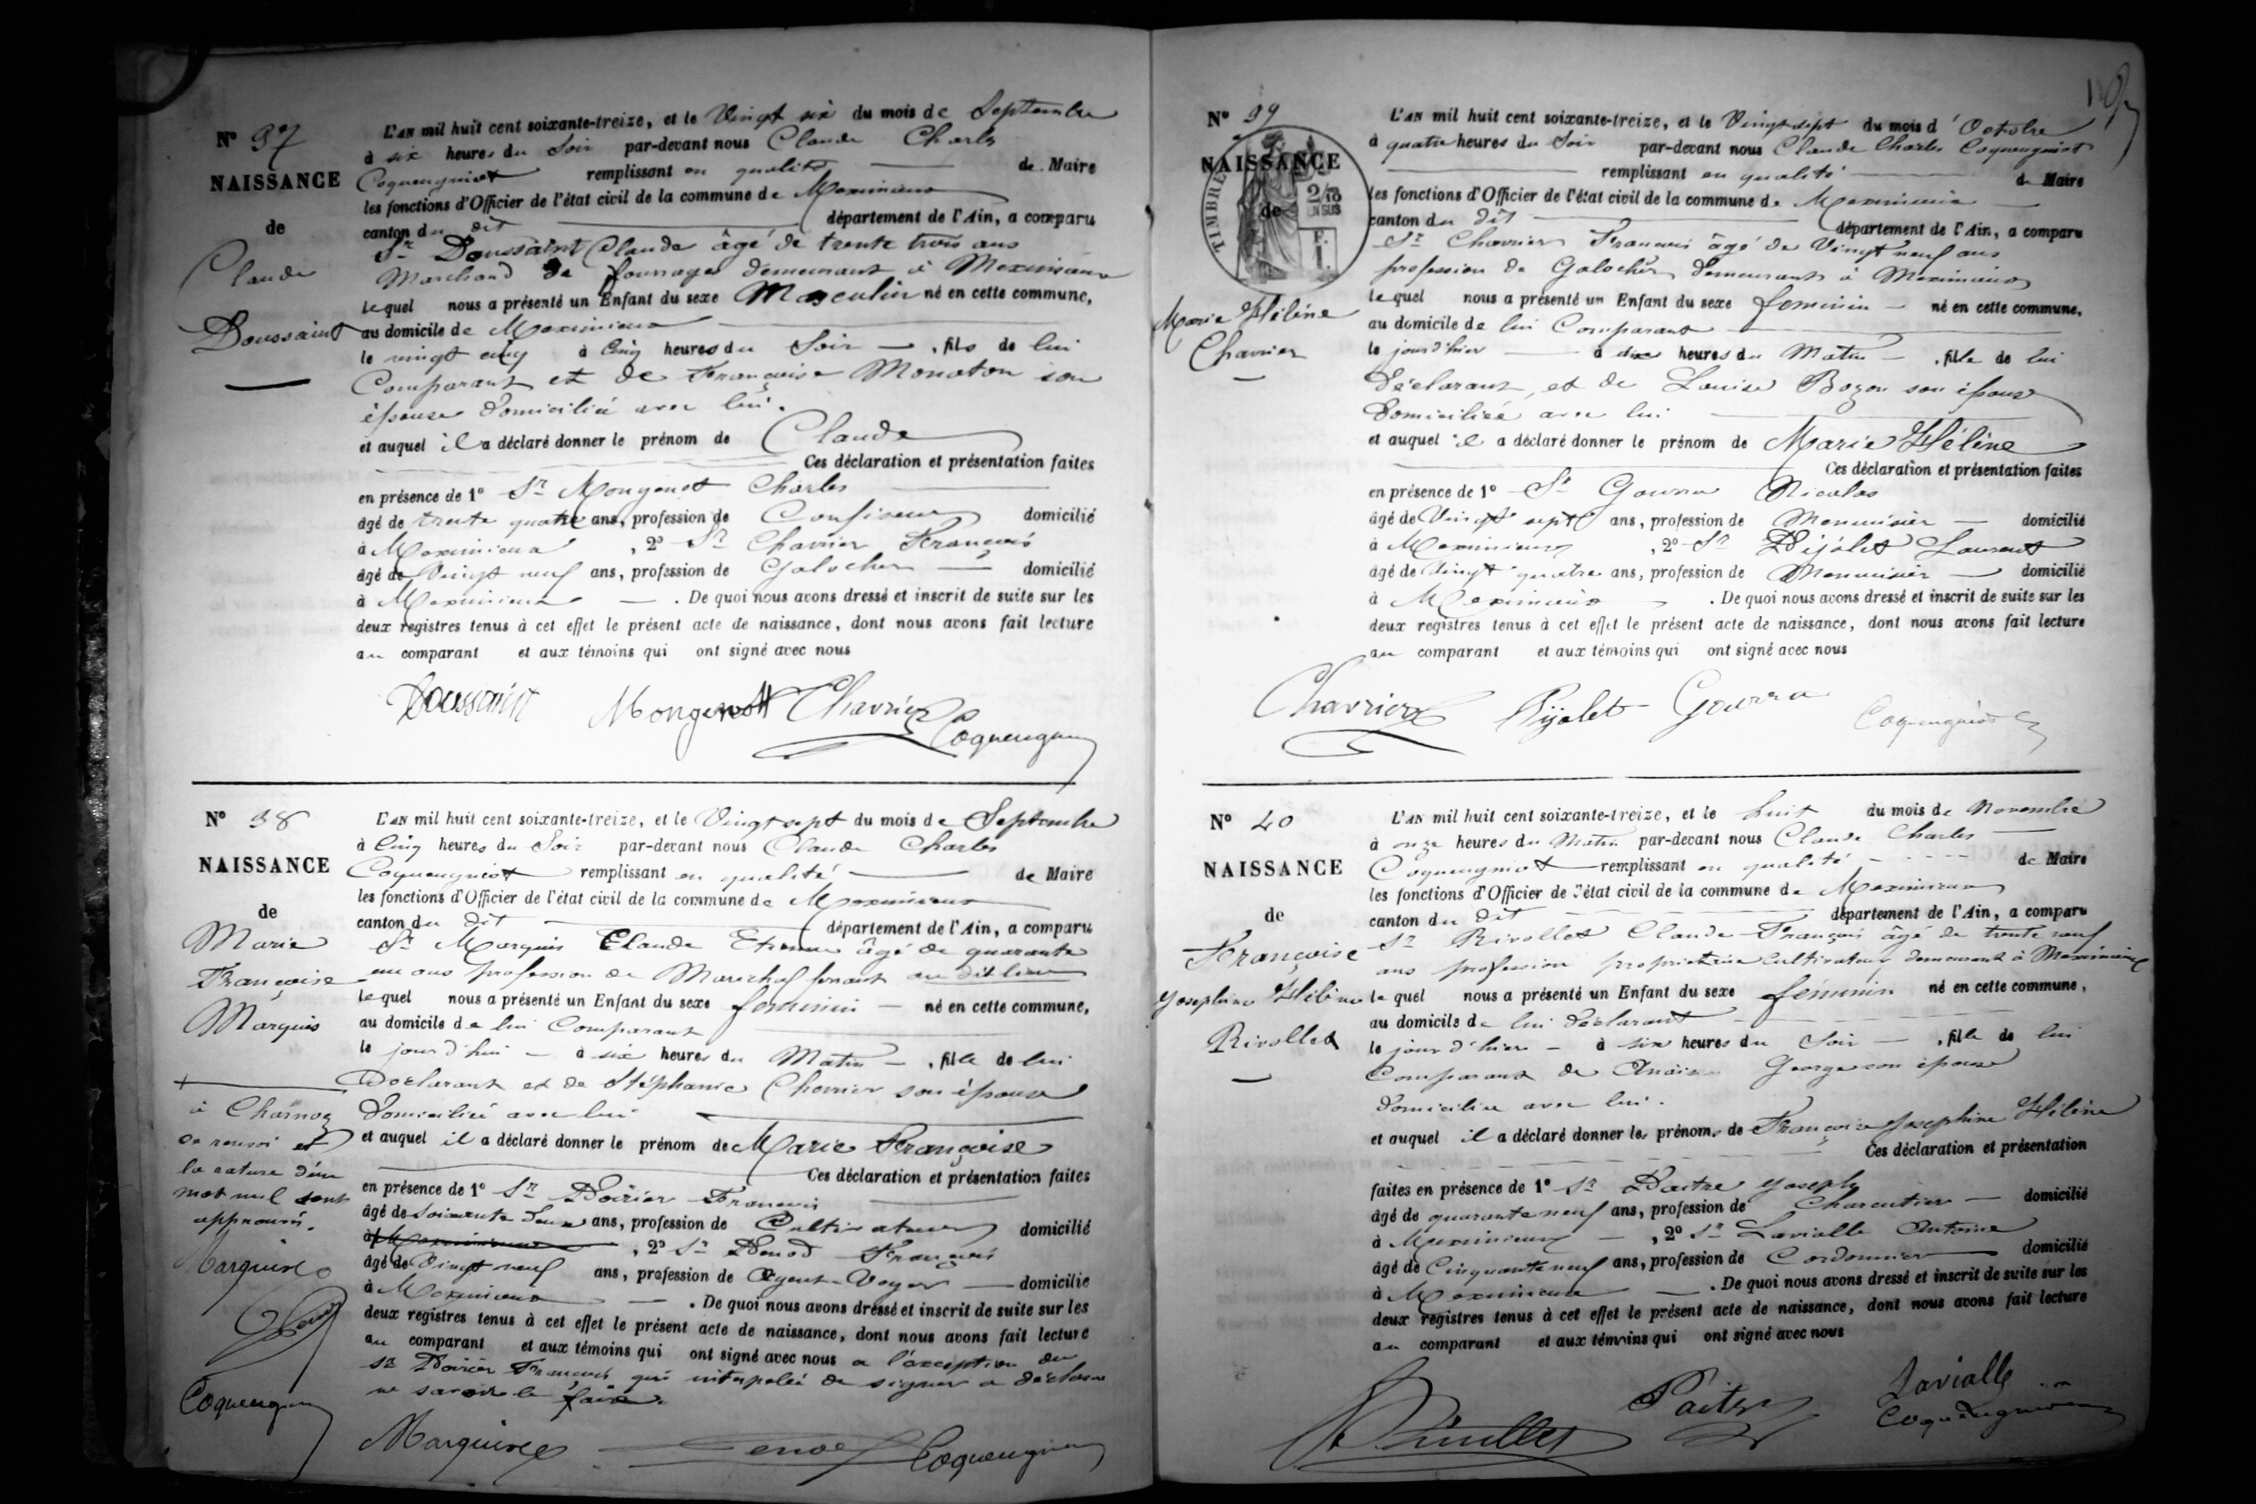 N° 37
NAISSANCE
de
Claude
Doussaint
L'AN mil huit cent soixante-treize, et le Vingt six du mois de Septembre
à six heures du Soir par-devant nous Claude Charles
Coqueugniot remplissant en qualité de Maire
les fonctions d'Officier de l'état civil de la commune de Meximieux
canton du dit département de l'Ain, a comparu
Sr Doussaint Claude âgé de trente trois ans
Marchand de fourrages demeurant à Meximieux
lequel nous a présenté un Enfant du sexe Masculin né en cette commune,
au domicile de Meximieux
le vingt cinq à Cinq heures du Soir , fils de lui
Comparant et de Françoise Monaton son
épouse domiciliée avec lui.
et auquel il a déclaré donner le prénom de Claude
Ces déclaration et présentation faites
en présence de 1° Sr Mongenot Charles
âgé de trente quatre ans, profession de Confiseur domicilié
à Meximieux , 2° Sr Chavrier François
âgé de Vingt neuf ans, profession de Galocher domicilié
à Meximieux . De quoi nous avons dressé et inscrit de suite sur les
deux registres tenus à cet effet le présent acte de naissance, dont nous avons fait lecture
au comparant et aux témoins qui ont signé avec nous
Doussaint Mongenot Chavrier Coqueugniot
N° 38
NAISSANCE
de
Marie
Françoise
Marguis
L'AN mil huit cent soixante-treize, et le Vingt sept du mois de Septembre
à Cinq heures du Soir par-devant nous Claude Charles
Coqueugniot remplissant en qualité de Maire
les fonctions d'Officier de l'état civil de la commune de Meximieux
canton du dit département de l'Ain, a comparu
Sr Marguis Claude Etienne âgé de quarante
un ans profession de Marechal ferrant au dit lieu
lequel nous a présenté un Enfant du sexe feminin né en cette commune,
au domicile de lui Comparant
le jour d'hui à six heures du Matin , fille de lui
Déclarant et de Stéphanie Chavrier son épouse
domiciliée avec lui
et auquel il a déclaré donner le prénom de Marie Françoise
Ces déclaration et présentation faites
en présence de 1° Sr Poirier François
âgé de soixante deux ans, profession de Cultivateur domicilié
à Meximieux , 2° Sr Denod François
âgé de Vingt neuf ans, profession de Agent-Voyer domicilié
à Meximieux . De quoi nous avons dressé et inscrit de suite sur les
deux registres tenus à cet effet le présent acte de naissance, dont nous avons fait lecture
au comparant et aux témoins qui ont signé avec nous a l'exception du
Sr Poirier François qui interpelé de signer a déclaré
ne savoir le faire.
à Charnoz
ce renvoi et
la rature d'un
mot nul sont
approuvés.
Coqueugniot
Denod Coqueugniot
N° 39
NAISSANCE
de
TIMBRE
Marie Hélène
Chavrier
L'AN mil huit cent soixante-treize, et le Vingt sept du mois d'Octobre
à quatre heures du Soir par-devant nous Claude Charles Coqueugniot
remplissant en qualité de Maire
les fonctions d'Officier de l'état civil de la commune de Meximieux
canton du dit département de l'Ain, a comparu
Sr Chavrier François âgé de Vingt neuf ans
profession de Galocher demeurant à Meximieux
lequel nous a présenté un Enfant du sexe feminin né en cette commune,
au domicile de lui Comparant
le jour d'hier à dix heures du Matin , fille de lui
Déclarant, et de Louise Bozon son épouse
domiciliée avec lui
et auquel il a déclaré donner le prénom de Marie Hélène
Ces déclaration et présentation faites
en présence de 1° Sr Gourra Nicolas
âgé de Vingt sept ans, profession de Menuisier domicilié
à Meximieux , 2° Sr Pijolet Laurent
âgé de Vingt quatre ans, profession de Menuisier domicilié
à Meximieux . De quoi nous avons dressé et inscrit de suite sur les
deux registres tenus à cet effet le présent acte de naissance, dont nous avons fait lecture
au comparant et aux témoins qui ont signé avec nous
Chavrier Pijolet Gourra Coqueugniot
N° 40
NAISSANCE
de
Françoise
Josephine Hélène
Rivollet
L'AN mil huit cent soixante-treize, et le huit du mois de Novembre
à onze heures du Matin par-devant nous Claude Charles
Coqueugniot remplissant en qualité de Maire
les fonctions d'Officier de l'état civil de la commune de Meximieux
canton du dit département de l'Ain, a comparu
Sr Rivollet Claude François âgé de trente neuf
ans profession proprietaire Cultivateur demeurant à Meximieux
lequel nous a présenté un Enfant du sexe féminin né en cette commune,
au domicile de lui déclarant
le jour d'hier à six heures du Soir , fille de lui
Comparant de Anaïs George son épouse
domiciliée avec lui.
et auquel il a déclaré donner les prénoms de Françoise Josephine Hélène
Ces déclaration et présentation
faites en présence de 1° Sr Paitre Joseph
âgé de quarante neuf ans, profession de Charcutier domicilié
à Meximieux , 2° Sr Lavialle Antoine
âgé de Cinquante neuf ans, profession de Cordonnier domicilié
à Meximieux . De quoi nous avons dressé et inscrit de suite sur les
deux registres tenus à cet effet le présent acte de naissance, dont nous avons fait lecture
au comparant et aux témoins qui ont signé avec nous
Rivollet Lavialle
Coqueugniot